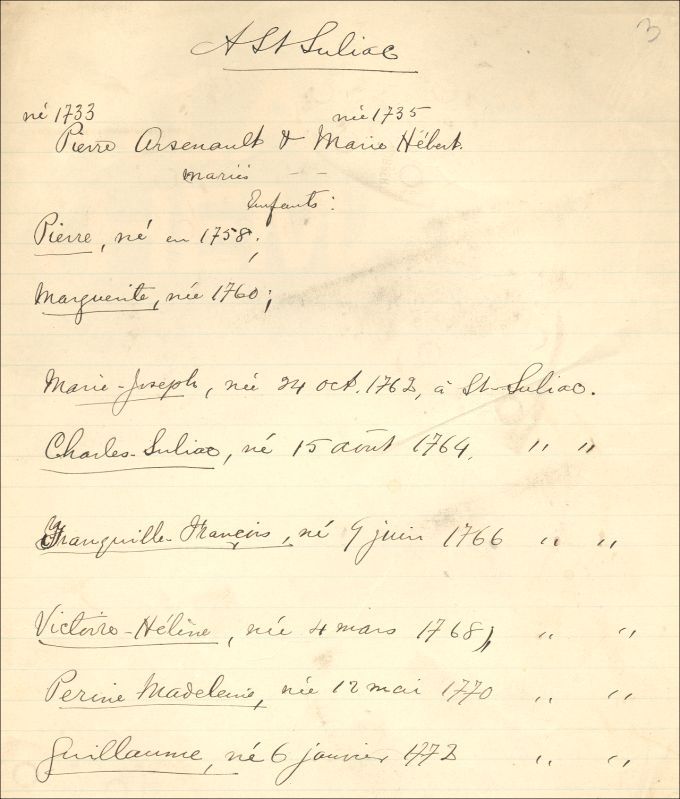 3
A St Suliac
né 1733 née 1735
Pierre Arsenault & Marie Hébert.
mariés - -
Enfants :
Pierre, né en 1758;
Marguerite, née 1760;
Marie-Joseph, née 24 oct. 1762, à St-Suliac.
Charles-Suliac, né 15 août 1764, " "
Tranquille-François, né 9 juin 1766 " "
Victoire-Hélène, née 4 mars 1768), " "
Perine Madeleine, née 12 mai 1770 " "
Guillaume, né 6 janvier 1772 " "